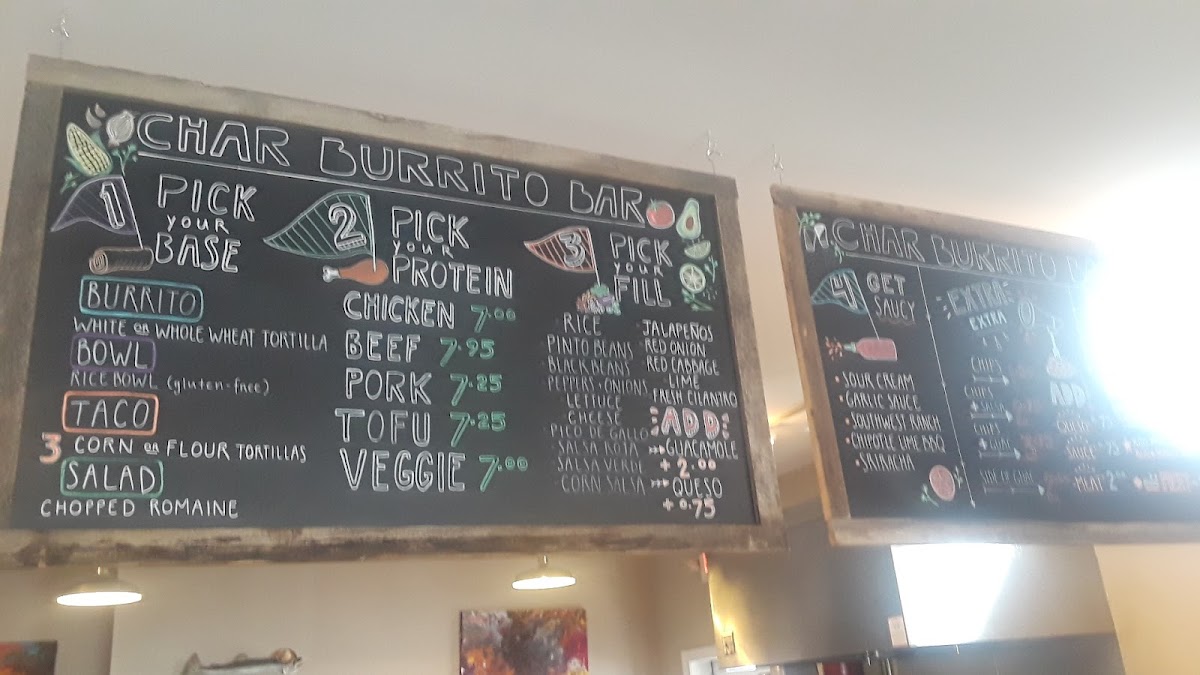 CHAR BURRITO BAR
1 PICK
YOUR
BASE
BURRITO
WHITE OR WHOLE WHEAT TORTILLA
BOWL
RICE BOWL (gluten-free)
TACO
3 CORN OR FLOUR TORTILLAS
SALAD
CHOPPED ROMAINE
2 PICK
YOUR
PROTEIN
CHICKEN 7.00
BEEF 7.95
PORK 7.25
TOFU 7.25
VEGGIE 7.00
3 PICK
YOUR
FILL
RICE
PINTO BEANS
BLACK BEANS
PEPPERS + ONIONS
LETTUCE
CHEESE
PICO DE GALLO
SALSA ROJA
SALSA VERDE
CORN SALSA
JALAPEÑOS
RED ONION
RED CABBAGE
LIME
FRESH CILANTRO
ADD
GUACAMOLE
+ 2.00
QUESO
+ 0.75
CHAR BURRITO
4 GET
SAUCY
• SOUR CREAM
• GARLIC SAUCE
• SOUTHWEST RANCH
• CHIPOTLE LIME BBQ
• SRIRACHA
EXTRA
EXTRA
CHIPS
CHIPS
+ SALSA
CHIPS
+ GUAC
SIDE OF GUAC
ADD
QUESO
SAUCE
MEAT